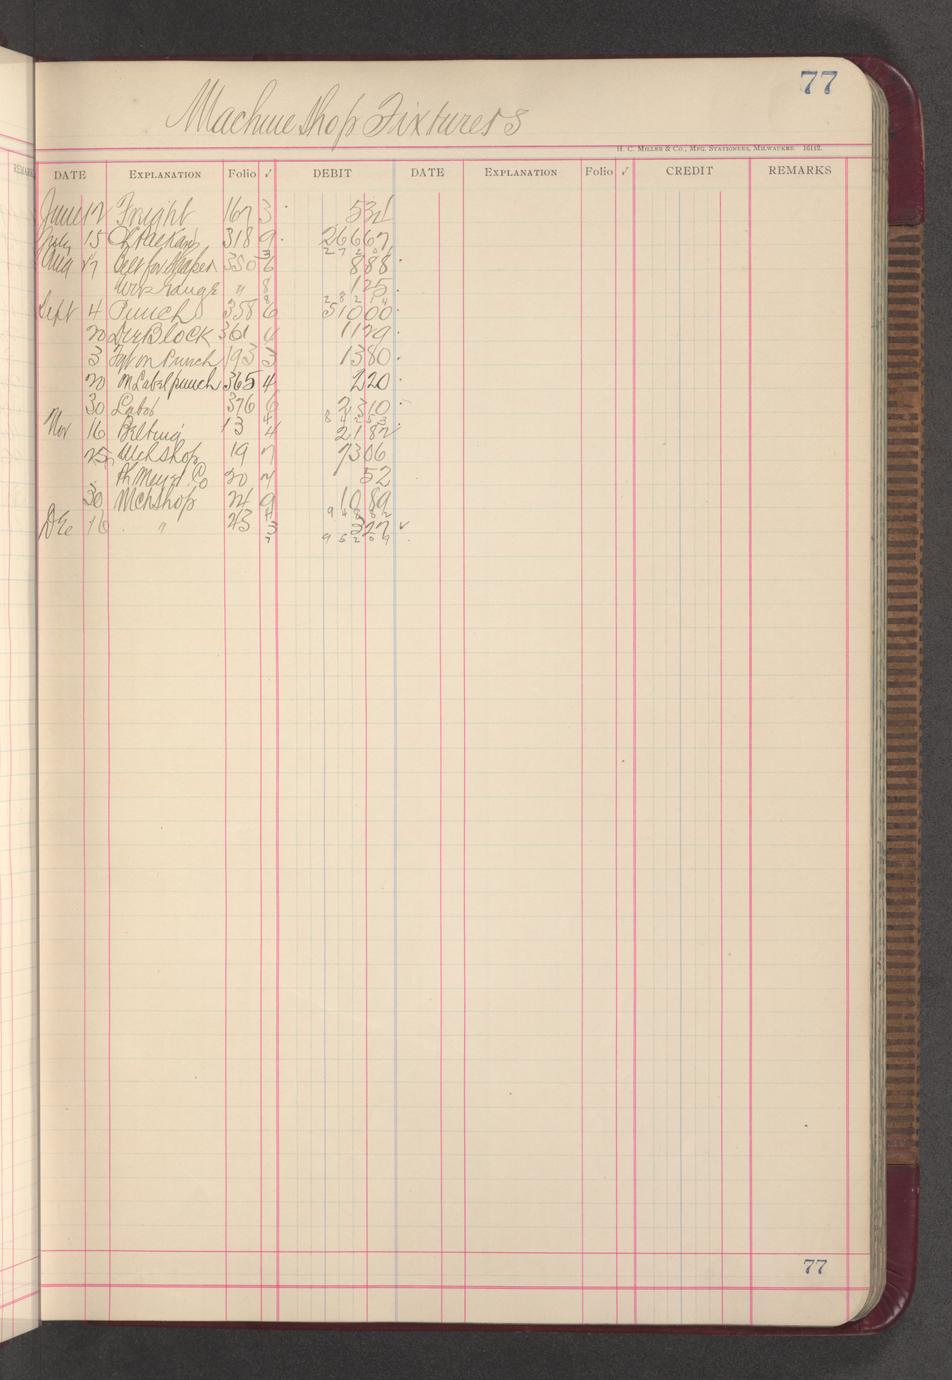 77
Machine Shop Fixtures
H. C. Miller & Co., Mfg. Stationers, Milwaukee. 16112.
DATE EXPLANATION Folio ✓ DEBIT DATE EXPLANATION Folio ✓ CREDIT REMARKS
June 12 Freight 167 3 534
July 15 318 9 26667
27201
Aug 27 Belt for Shaper 350 6 888
" 8 125
28214
Sept 4 Punch 358 6 51000
20 Die Block 361 4 1129
3 Frt on Punch 193 3 1380
20 on Label punch 365 4 220
30 Labor 376 6 2310
84253
Nov 16 Belting 13 4 2182
25 Mchshop 19 7 7306
20 7 52
30 Mchshop 24 9 1089
94882
Dec 16 " 43 3 327 ✓
7 95209
77